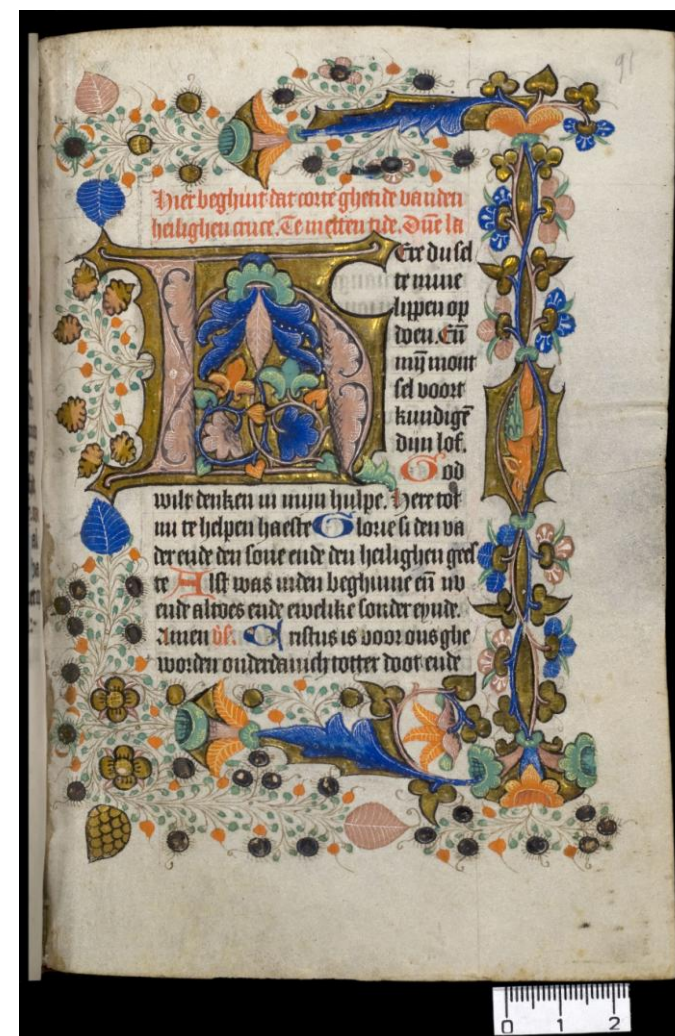 91
Hier beghint dat corte ghetide vanden
heilighen cruce. Te metten tide. Dn̄e la
HEre du sel
te mine
lippen op
doen. Eñ
mij mont
sel voort
kundigē
dijn lof.
God
wilt denken in mijn hulpe. Here tot
mi te helpen haeste Glorie si den va
der ende den sone ende den heilighen gees
te Alst was inden beghinne eñ nv
ende altoes ende ewelike sonder eynde.
Amen vs. Cristus is voor ons ghe
worden onderdanich totter doot ende
0 1 2